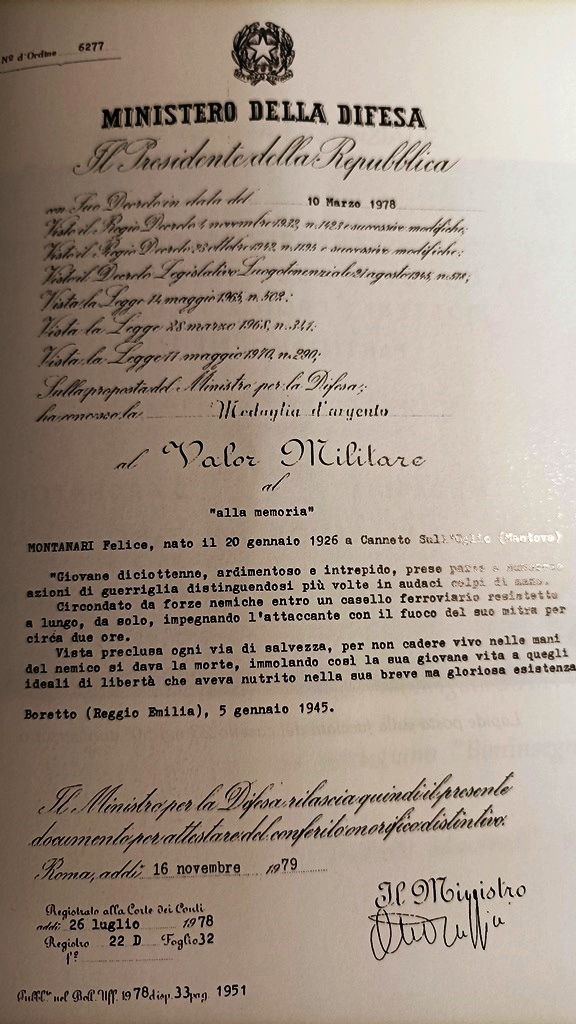 Nº d'Ordine 6277
MINISTERO DELLA DIFESA
Il Presidente della Repubblica
con Suo Decreto in data del 10 Marzo 1978
Visto il Regio Decreto 4 novembre 1932, n. 1423 e successive modifiche;
Visto il Regio Decreto 23 ottobre 1942, n. 1195 e successive modifiche;
Visto il Decreto Legislativo Luogotenenziale 21 agosto 1945, n. 518;
Vista la Legge 14 maggio 1965, n. 502;
Vista la Legge 25 marzo 1968, n. 341;
Vista la Legge 11 maggio 1970, n. 290;
Sulla proposta del Ministro per la Difesa;
ha concesso la Medaglia d'argento
al Valor Militare
al
"alla memoria"
MONTANARI Felice, nato il 20 gennaio 1926 a Canneto Sull'Oglio (Mantova)
"Giovane diciottenne, ardimentoso e intrepido, prese parte a numerose
azioni di guerriglia distinguendosi più volte in audaci colpi di mano.
Circondato da forze nemiche entro un casello ferroviario resistette
a lungo, da solo, impegnando l'attaccante con il fuoco del suo mitra per
circa due ore.
Vista preclusa ogni via di salvezza, per non cadere vivo nelle mani
del nemico si dava la morte, immolando così la sua giovane vita a quegli
ideali di libertà che aveva nutrito nella sua breve ma gloriosa esistenza
Boretto (Reggio Emilia), 5 gennaio 1945.
Il Ministro per la Difesa rilascia quindi il presente
documento per attestare del conferito onorifico distintivo.
Roma, addì 16 novembre 1979
Il Ministro
Registrato alla Corte dei Conti
addì 26 luglio 1978
Registro 22 D Foglio 32
fº
Pubbl.to nel Boll. Uff. 1978 disp. 33 pag. 1951